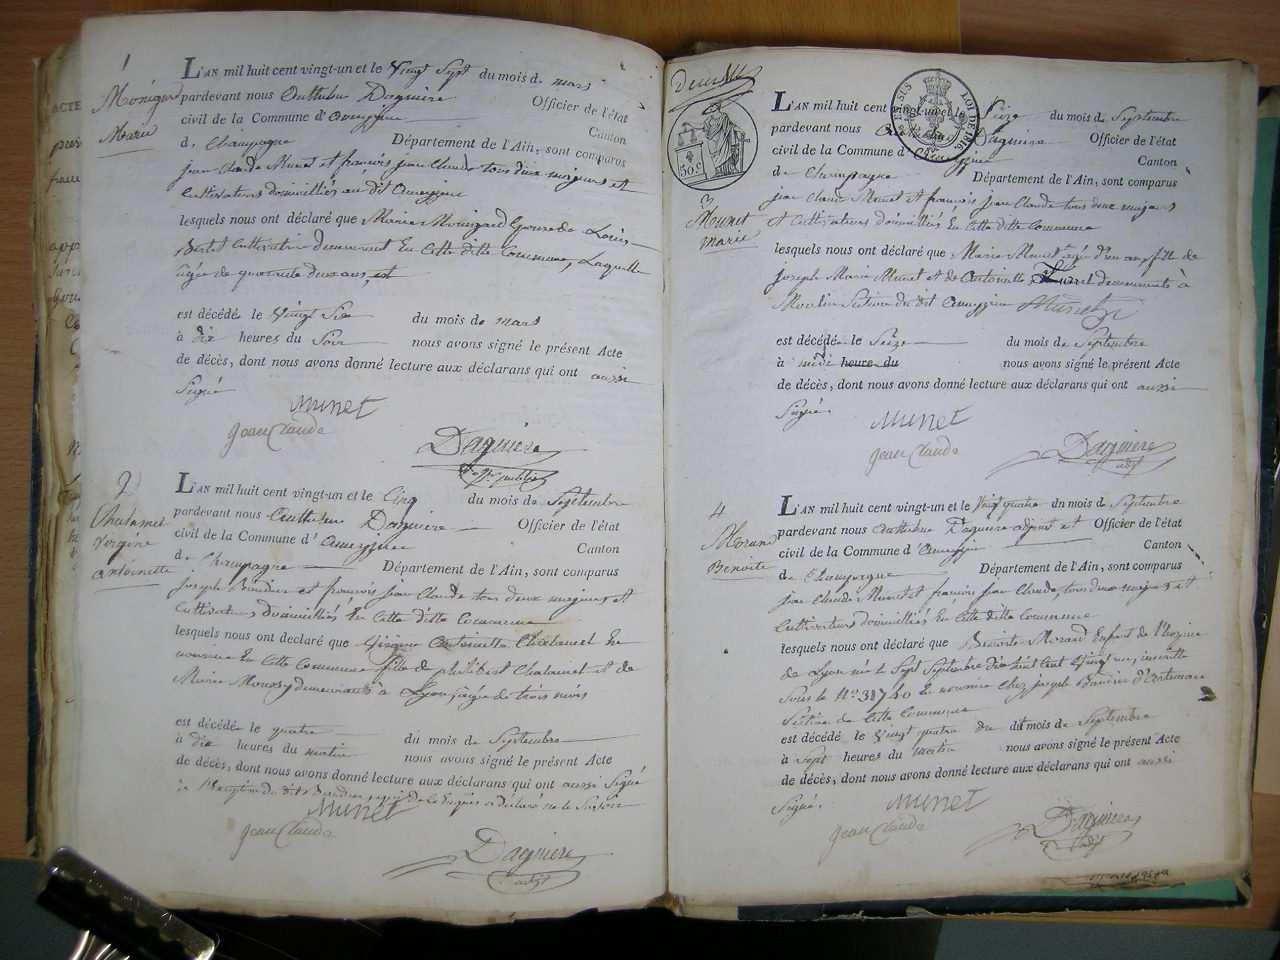 1
Monigard
Marie
L'AN mil huit cent vingt-un et le Vingt Sept du mois de mars
pardevant nous Daguiere Officier de l'état
civil de la Commune d'
Canton
de Champagne Département de l'Ain, sont comparus
jean Claude Munet et françois jean Claude tous deux majeurs et
Cultivateurs domiciliés au dit
lesquels nous ont déclaré que Marie Monigard de Louis
Cultivateur demeurant En Cette ditte Commune, Laquelle
agée de quarante deux ans, est
est décédé le Vingt Six du mois de mars
à dix heures du Soir nous avons signé le présent Acte
de décès, dont nous avons donné lecture aux déclarans qui ont aussi
Signé
Munet
jean Claude
Daguiere
2
Chatamel
Virgine
antoinette
L'AN mil huit cent vingt-un et le Cinq du mois de Septembre
pardevant nous Daguiere Officier de l'état
civil de la Commune d'
Canton
de Champagne Département de l'Ain, sont comparus
joseph et françois jean Claude tous deux majeurs et
Cultivateurs Domiciliés En Cette ditte Commune
lesquels nous ont déclaré que Virgine Antoinette Chatamel En
nourrice En Cette Commune fille de philibert Chatamel et de
Marie demeurants à Lyon agée de trois mois
est décédé le quatre du mois de Septembre
à dix heures du matin nous avons signé le présent Acte
de décès, dont nous avons donné lecture aux déclarans qui ont aussi Signé
Munet
jean Claude
Daguiere
adjt
50 c
LOI DE 1816
3
Munet
marie
L'AN mil huit cent vingt-un et le Seize du mois de Septembre
pardevant nous Daguiere Officier de l'état
civil de la Commune d'
Canton
de Champagne Département de l'Ain, sont comparus
jean Claude Munet et françois jean Claude tous deux majeurs
et Cultivateurs domiciliés En Cette ditte Commune
lesquels nous ont déclaré que Marie Munet agé d'un an, fille de
joseph Marie Munet et de Antoinette demeurants à
Moulin Section du dit Munet
est décédé le Seize du mois de Septembre
à midi heure du nous avons signé le présent Acte
de décès, dont nous avons donné lecture aux déclarans qui ont aussi
Signé.
Munet
jean Claude
Daguiere
adjt
4
Morand
Benoite
L'AN mil huit cent vingt-un et le Vingt quatre du mois de Septembre
pardevant nous Daguiere adjoint et Officier de l'état
civil de la Commune d'
Canton
de Champagne Département de l'Ain, sont comparus
jean Claude Munet et françois jean Claude, tous deux majeurs et
Cultivateurs domiciliés En Cette ditte Commune
lesquels nous ont déclaré que Benoite Morand Enfant de l'hospice
de Lyon née le Sept Septembre dix huit cent Vingt un, inscritte
Sous le N° 31740 En nourrice Chez joseph
Section de Cette Commune
est décédé le Vingt quatre du dit mois de Septembre
à Sept heures du matin nous avons signé le présent Acte
de décès, dont nous avons donné lecture aux déclarans qui ont aussi
Signé.
Munet
jean Claude
Daguiere
adjt